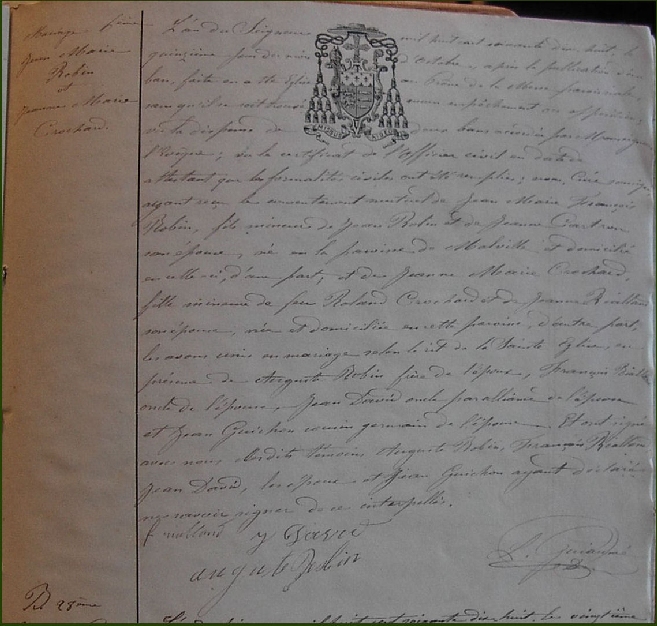 Mariage
Jean Marie
Robin
et
Jeanne Marie
Crochard.
L'an du Seigneur mil huit cent soixante dix huit, le
quinzième jour du mois d'Octobre après la publication d'un
ban, faite en cette Eglise au Prône de la Messe paroissiale,
sans qu'il se soit trouvé aucun empêchement ou opposition;
vu la dispense de deux bans accordée par Monseigneur
l'Evêque; vu le certificat de l'Officier civil en date
attestant que les formalités civiles ont été remplies; nous, Curé soussigné
ayant reçu le consentement mutuel de Jean Marie François
Robin, fils mineur de Jean Robin et de Jeanne
son épouse, né en la paroisse de Malville et domicilié
en celle-ci, d'une part; et de Jeanne Marie Crochard,
fille mineure de feu Roland Crochard et de Jeanne Rialland
son épouse, née et domiciliée en cette paroisse, d'autre part,
les avons unis en mariage selon le rit de la Sainte Eglise, en
présence de Auguste Robin frère de l'époux, François Rialland
oncle de l'épouse, Jean David oncle par alliance de l'épouse
et Jean Guichon cousin germain de l'épouse. Et ont signé
avec nous lesdits témoins Auguste Robin, François Rialland
Jean David, les époux et Jean Guichon ayant déclaré
ne savoir signer de ce interpellés.
f rialland y David
auguste Robin
23ème
dix huit, le vingtième